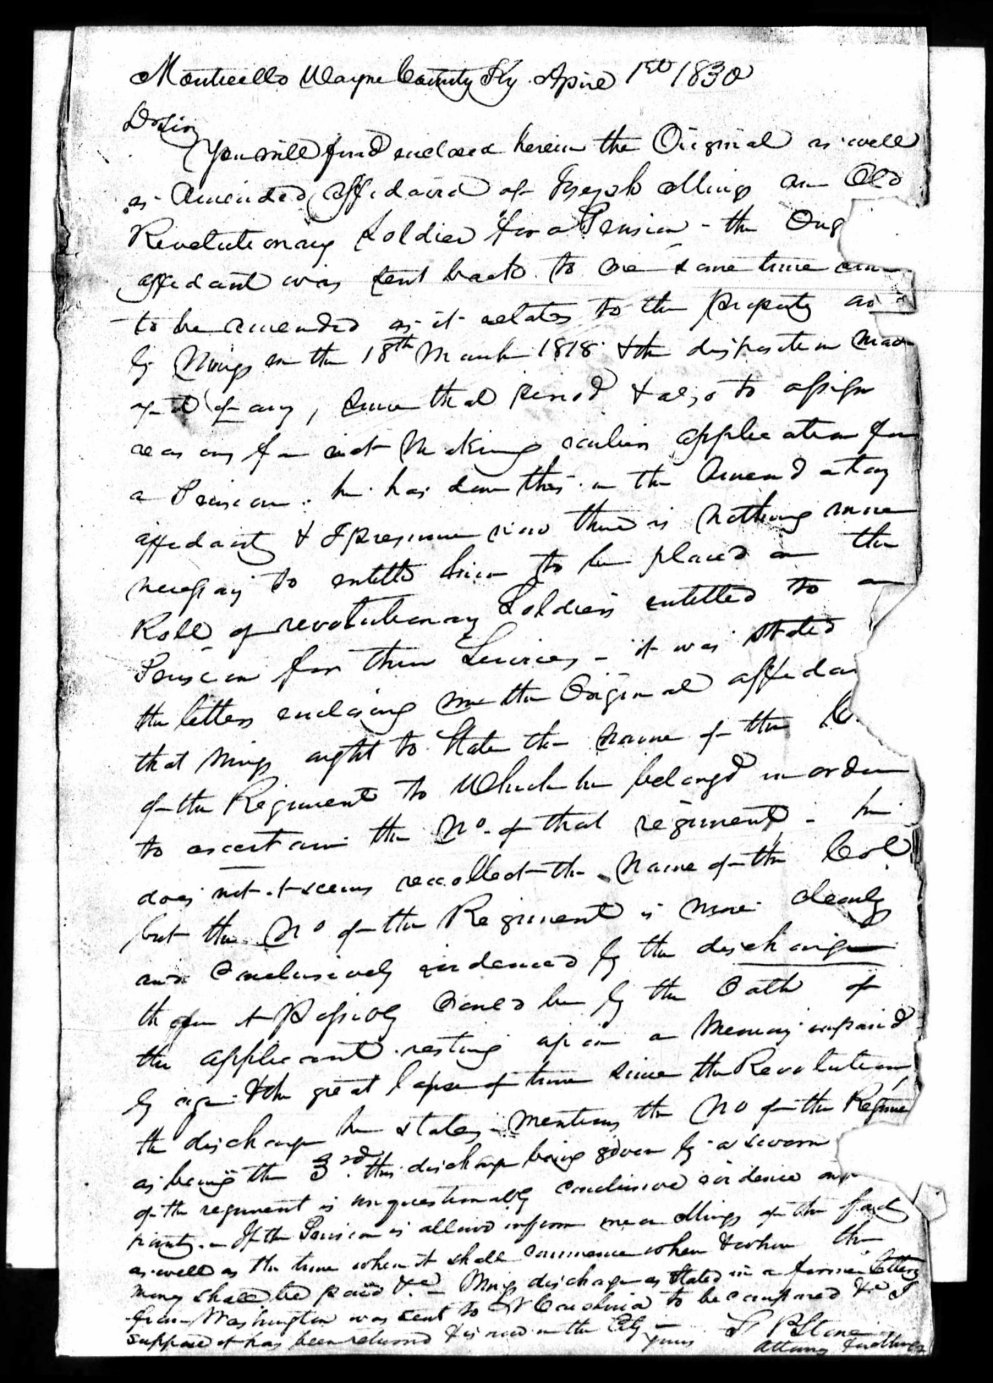 Monticello Wayne County Ky April 1st 1830
Dr Sir
You will find enclosed herein the Original as well
as Amended affidavid of Joseph Mings an Old
Revolutionary Soldier for a Pension - the Orig
affidavit was sent back to me some time
to be amended as it relates to the property
by Mings on the 18th March 1818 & the disposition made
of it if any, since that period & also to assign
reasons for not making earlier application for
a Pension. he has done this in the Amendatory
affidavity & I presume now there is nothing more
necessary to entitle him to be placed on the
Roll of revolutionary Soldiers entitled to a
Pension for their Services - it was stated
the letter enclosing me the Original affidav
that Mings ought to State the name of the
of the Regiment to which he belongd in order
to ascertain the No. of that regiment - he
does not it seems recollect the Name of the Col
but the No of the Regiment is more clearly
and Conclusively evidenced by the discharge
than it Possibly Could be by the Oath of
the applicant resting upon a Memory impaird
by age & the great lapse of time since the Revolution,
the discharge he states mentions the No of the Regime
as being the 3rd this discharge being given by a
of the regiment is unquestionably conclusive evidence
If the Pension is allowd inform me or Mings of the fact
as well as the time when it shall commence when & where the
money shall be paid &c. Mings discharge as Stated in a former letter
from Washington was sent to N Carolina to be compared &c I
suppose it has been returned & is now in the City -
yours
Attorney for Mings